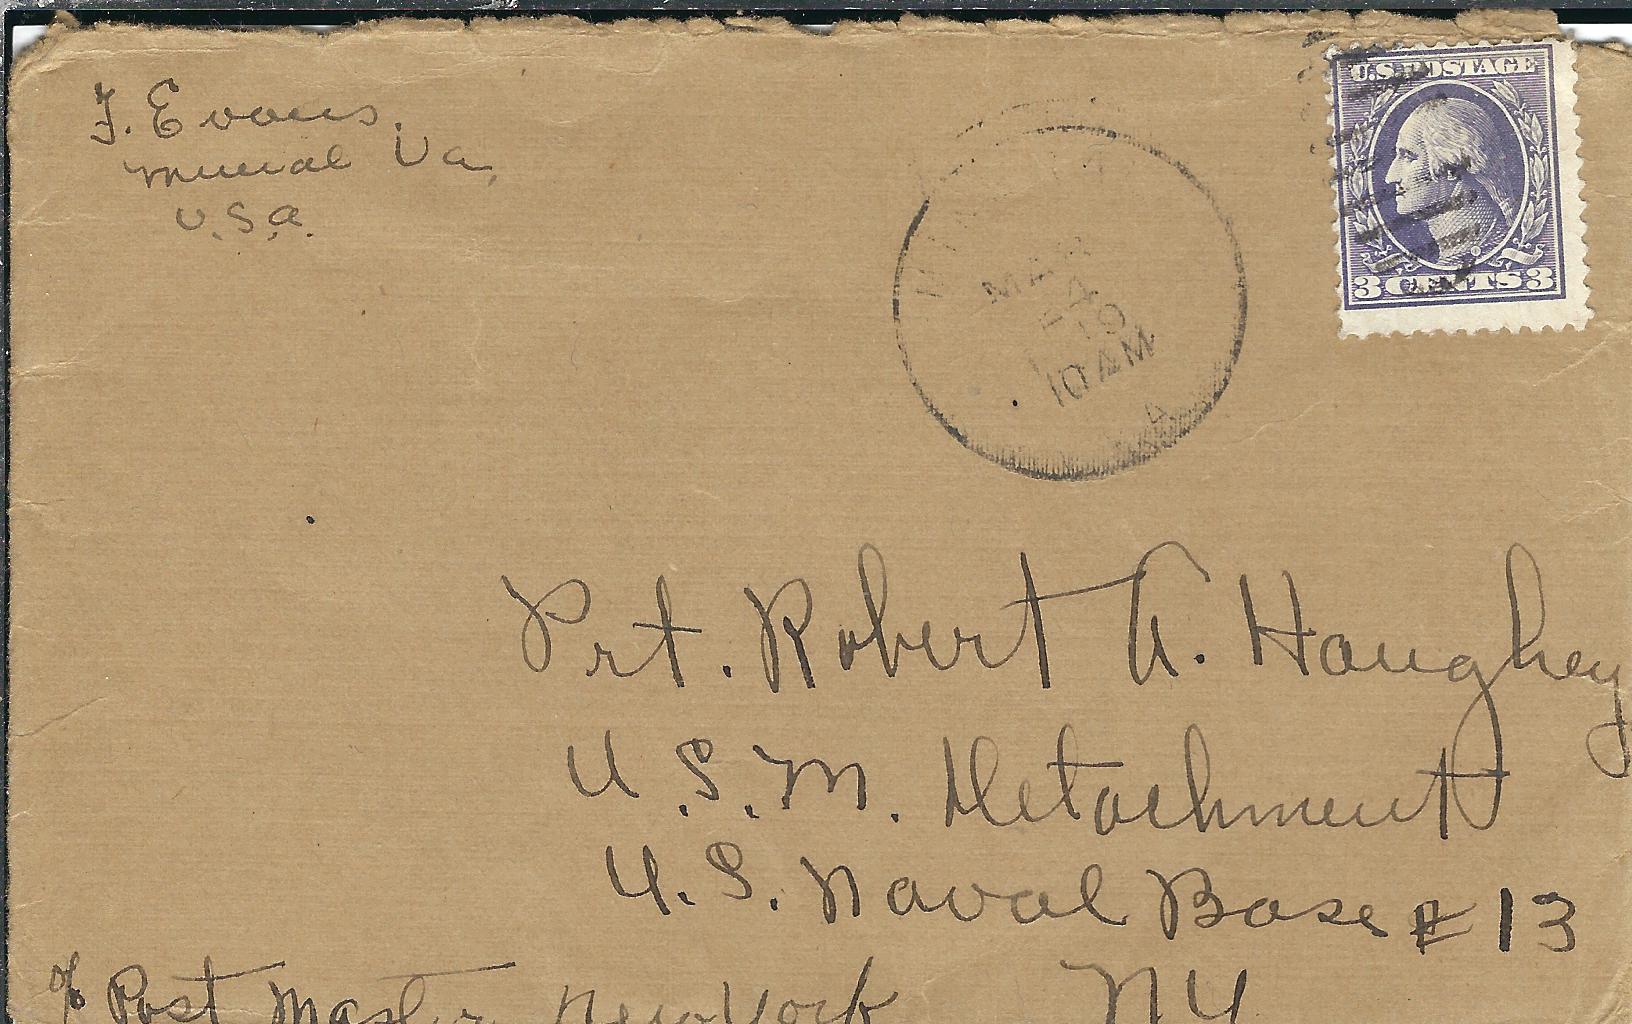 F. Evans.
Mineral Va,
U.S.A.
U.S. POSTAGE
3 CENTS 3
MAR
4
10 AM
Prt. Robert A. Haughey
U.S.M. Detachment
U.S. Naval Base # 13
c/o Post Master New York NY